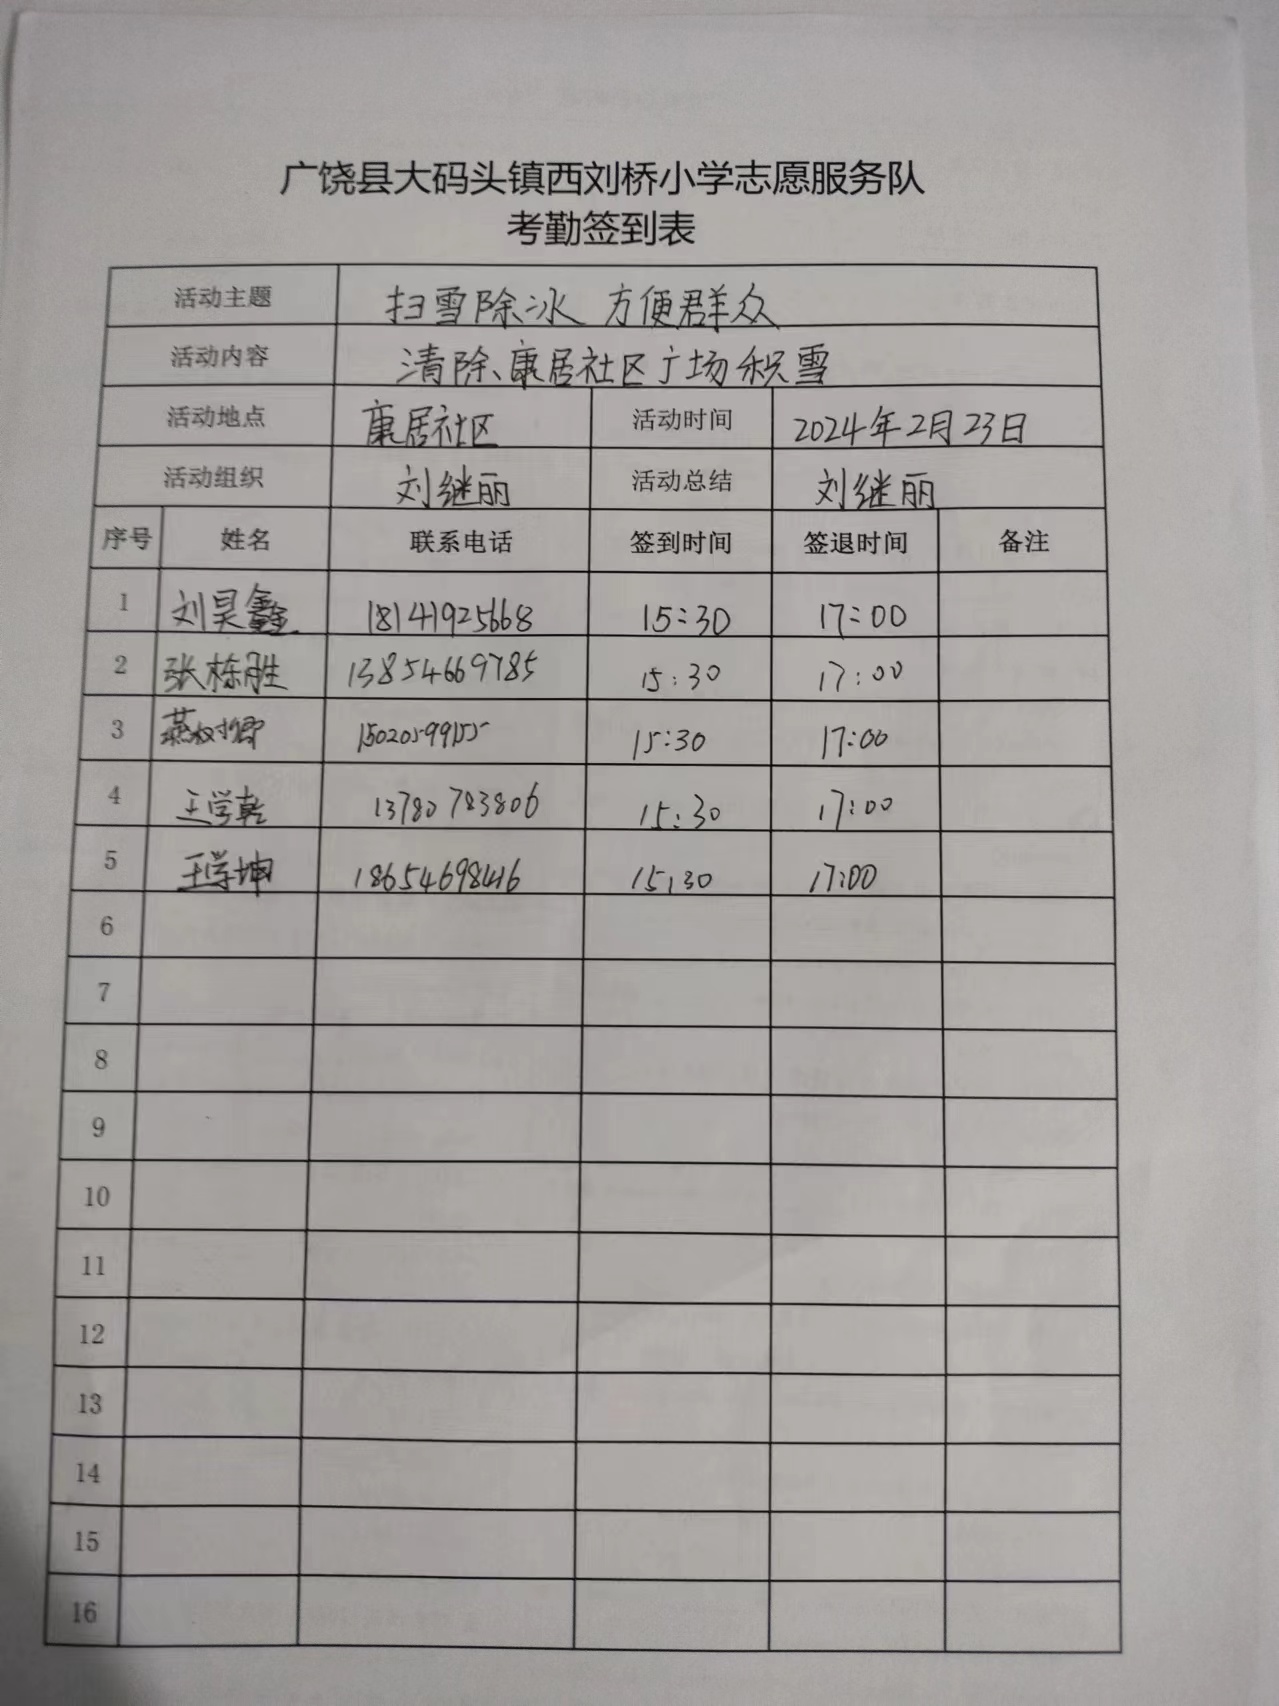 广饶县大码头镇西刘桥小学志愿服务队
考勤签到表
活动主题 扫雪除冰 方便群众
活动内容 清除康居社区广场积雪
活动地点 康居社区 活动时间 2024年2月23日
活动组织 刘继丽 活动总结 刘继丽
序号 姓名 联系电话 签到时间 签退时间 备注
1 刘昊鑫 18141925668 15:30 17:00
2 张栋胜 13854669785 15:30 17:00
3 15020599155 15:30 17:00
4 王学乾 13780783806 15:30 17:00
5 王学坤 18654698416 15:30 17:00
6
7
8
9
10
11
12
13
14
15
16